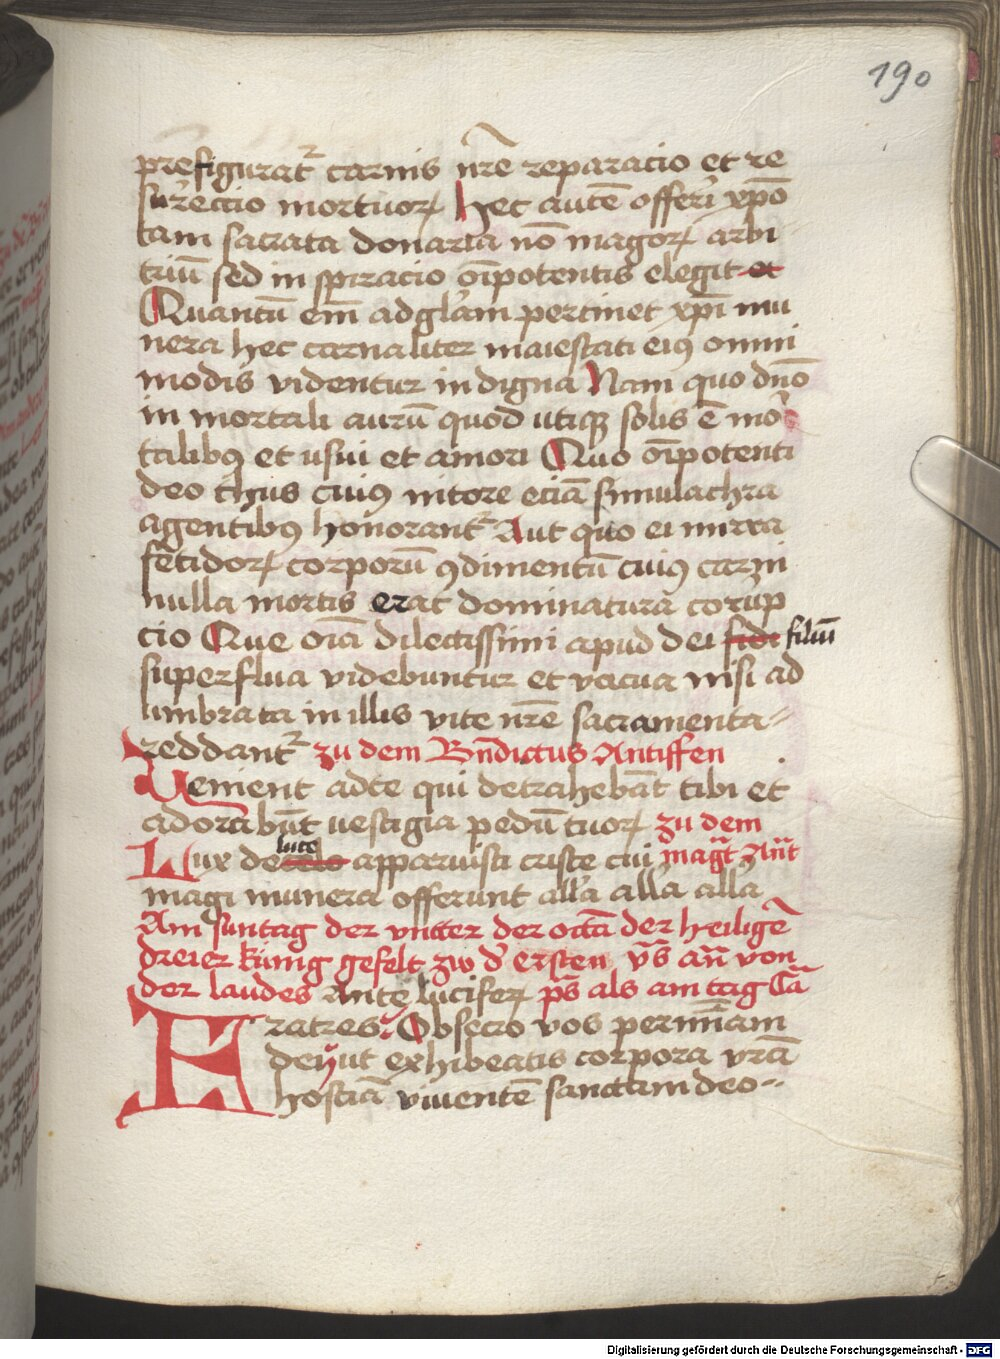 190
prefigurat᷑ carnis nr̄e reparacio et re
surreccio mortuoꝝ Hec autē offerri xp̄o
tam sacrata donaria nō magoꝝ arbi
triū sed inspiracio oīpotentis elegit et
Quantū em̄ ad gl̄am pertinet xp̄i mu
nera hec carnaliter maiestati eiꝯ omni
modis videntur indigna Nam quo dn̄o
in mortali aurū quod utiqꝫ solis ē mor
talibꝯ et usui et amori Quo oīpotenti
deo thus cuiꝯ nitore eciā simulachra
agentibꝯ honorant᷑ Aut quo ei mirra
fetidoꝝ corporū ꝯdimentū cuiꝯ carni
nulla mortis erat dominatura corrup
cio Que oīa dilectissimi apud dei filiū
superflua videbuntur et vacua nisi ad
umbrata in illis vite nr̄e sacramenta
reddant᷑ zu dem Bn̄dictus Antiffen
Uenient ad te qui detrahebāt tibi et
adorabūt uestigia pedū tuoꝝ zu dem
Lux de luce apparuisti criste cui magt̄ Ant̄
magi munera offerunt all̄a all̄a all̄a
Am suntag der vntter der octā der heiligē
dreier küng gefelt zw d᷑ ersten vs̄ an̄ von
der laudes Ante luciferꝝ ps̄ als am tag Cā
Fratres Obsecro vos per mīam
dei ut exhibeatis corpora vrā
hostiā viuentē sanctam deo
Digitalisierung gefördert durch die Deutsche Forschungsgemeinschaft - DFG